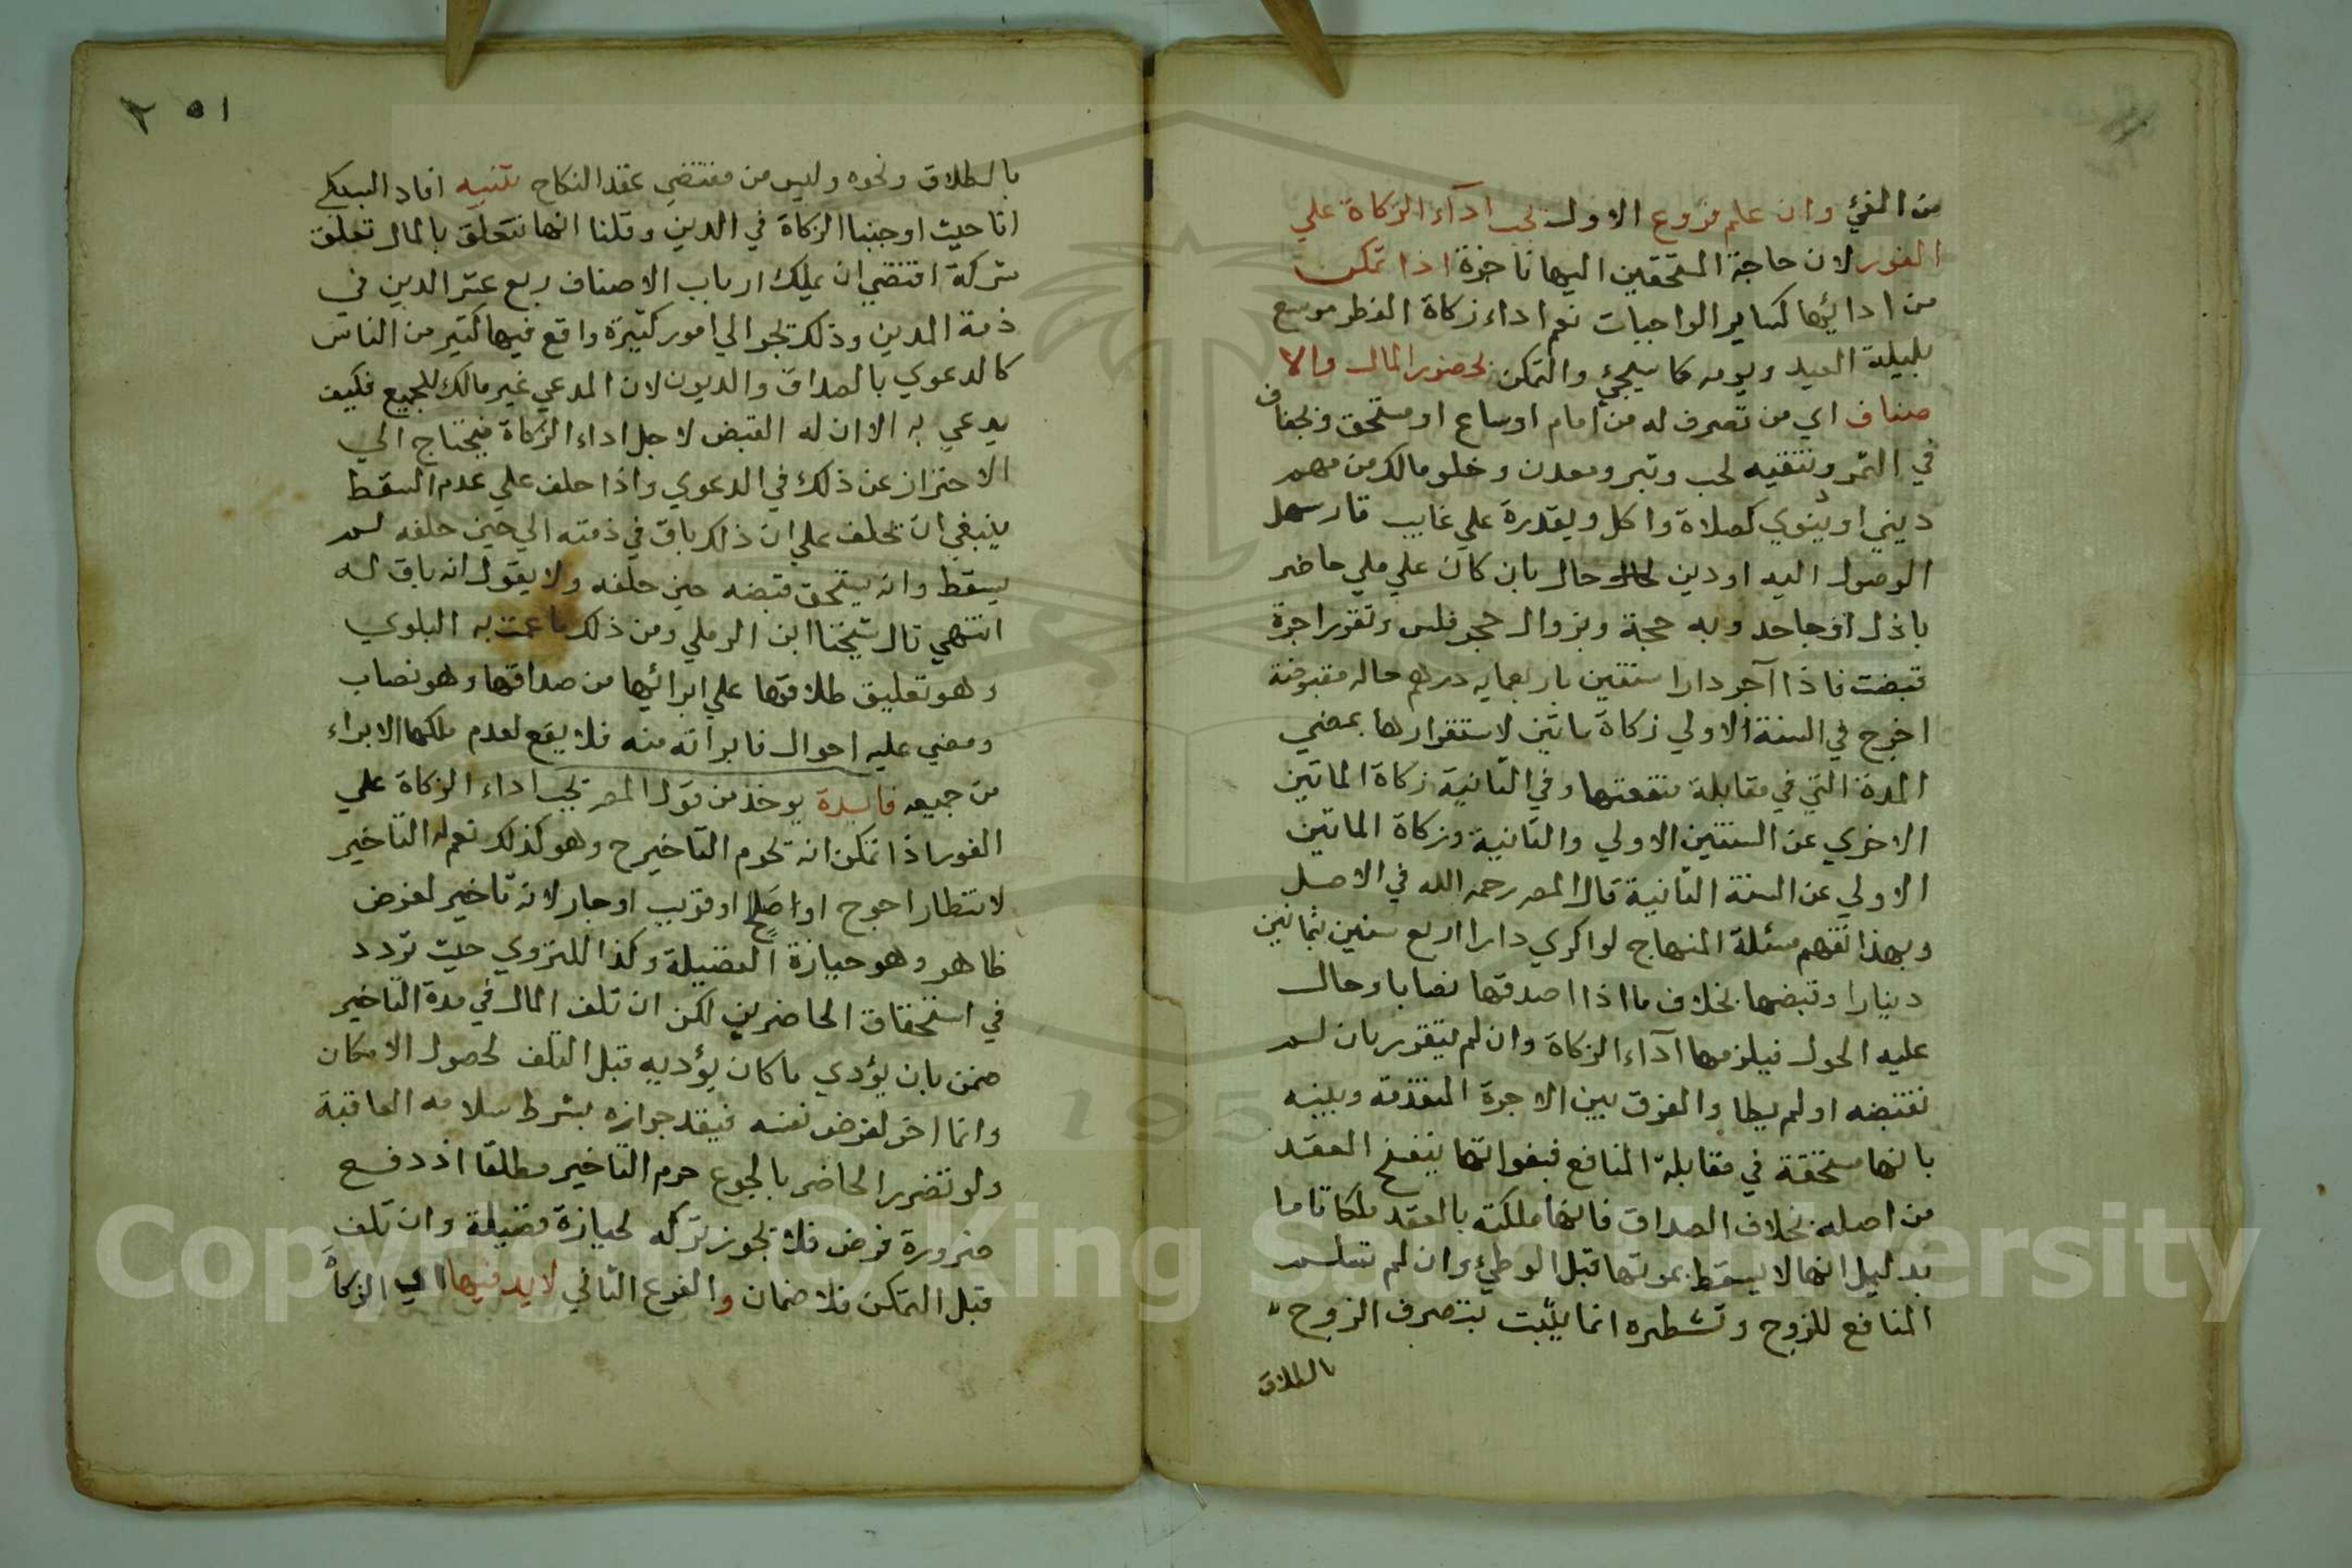 من الفئ وان علم فروع الاول تجب اداء الزكاة علي
الفور لان حاجة المستحقين اليها ناجزة اذا تمكن
من ادائها كساير الواجبات نعم اداء زكاة الفطر موسع
بليلة العيد ويومه كما سيجئ والتمكن بحضور المال والا
صناف اي من تصرف له من امام اوساع او مستحق وبجفاف
في التمر وتنقيه لحب وتبر ومعدن وخلو مالك من مهم
ديني او دنيوي كصلاة واكل وبقدرة علي غايب قار سهل
الوصول اليه او دين حال بان كان علي ملي حاضر
باذل او جاحد وبه حجة وبزوال حجر فلس وتقرر اجرة
قبضت فاذا آجر دارا سنتين باربعمايه درهم حاله مقبوضة
اخرج في السنة الاولي زكاة ماتين لاستقرارها بمضي
المدة التي في مقابلة منفعتها وفي الثانية زكاة الماتين
الاخري عن السنتين الاولي والثانية وزكاة الماتين
الاولي عن السنة الثانية قال المصر رحمه الله في الاصل
وبهذا تفهم مسئلة المنهاج لو اكري دارا اربع سنين بثمانين
دينارا وقبضها بخلاف ما اذا اصدقها نصابا وحال
عليه الحول فيلزمها آداء الزكاة وان لم يتقرر بان لم
تقتبضه او لم يطا والفرق بين الاجرة المتقدمة وبينه
بانها مستحقة في مقابلة المنافع فبفواتها ينفسخ العقد
من اصله بخلاف الصداق فانها ملكته بالعقد ملكا تاما
بدليل انها لا يسقط بموتها قبل الوطئ وان لم تسلم
المنافع للزوج وتشطره انما يثبت بتصرف الزوج
بالطلاق
٢٥١
بالطلاق ونحوه وليس من مقتضي عقد النكاح تنبيه افاد السبكي
انا حيث اوجبنا الزكاة في الدين وقلنا انها تتعلق بالمال تعلق
شركة اقتضي ان يملك ارباب الاصناف ربع عشر الدين في
ذمة المدين وذلك يجر الي امور كثيرة واقع فيها كثير من الناس
كالدعوي بالصداق والديون لان المدعي غير مالك للجميع فكيف
يدعي به الا ان له القبض لاجل اداء الزكاة فيحتاج الي
الاحتراز عن ذلك في الدعوي واذا حلف علي عدم السقط
ينبغي ان يحلف علي ان ذلك باق في ذمته الي حين حلفه لم
يسقط وانه يستحق قبضه حين حلفه ولا يقول انه باق له
انتهي قال شيخنا ابن الرملي ومن ذلك ما عمت به البلوي
وهو تعليق طلاقها علي ابرائها من صداقها وهو نصاب
ومضي عليه احوال فابراته منه فلا يقع لعدم ملكها الابراء
من جميعه فايدة يوخذ من قول المصر تجب اداء الزكاة علي
الفور اذا تمكن انه يحرم التاخير ح وهو كذلك نعم له التاخير
لانتظار احوج او اصلح او قريب او جار لانه تاخير لغرض
ظاهر وهو حيازة الفضيلة وكذا للتروي حيث تردد
في استحقاق الحاضرين لكن ان تلف المال في مدة التاخير
ضمن بان يؤدي ما كان يؤديه قبل التلف لحصول الامكان
وانما اخر لغرض نفسه فيقيد جوازه بشرط سلامه العاقبة
ولو تضرر الحاضر بالجوع حرم التاخير مطلقا اذ دفع
ضرورة فرض فلا يجوز تركه لحيازة فضيلة وان تلف
قبل التمكن فلا ضمان والفرع الثاني لا بد فيها اي الزكاة
Copyright © King Saud University
195